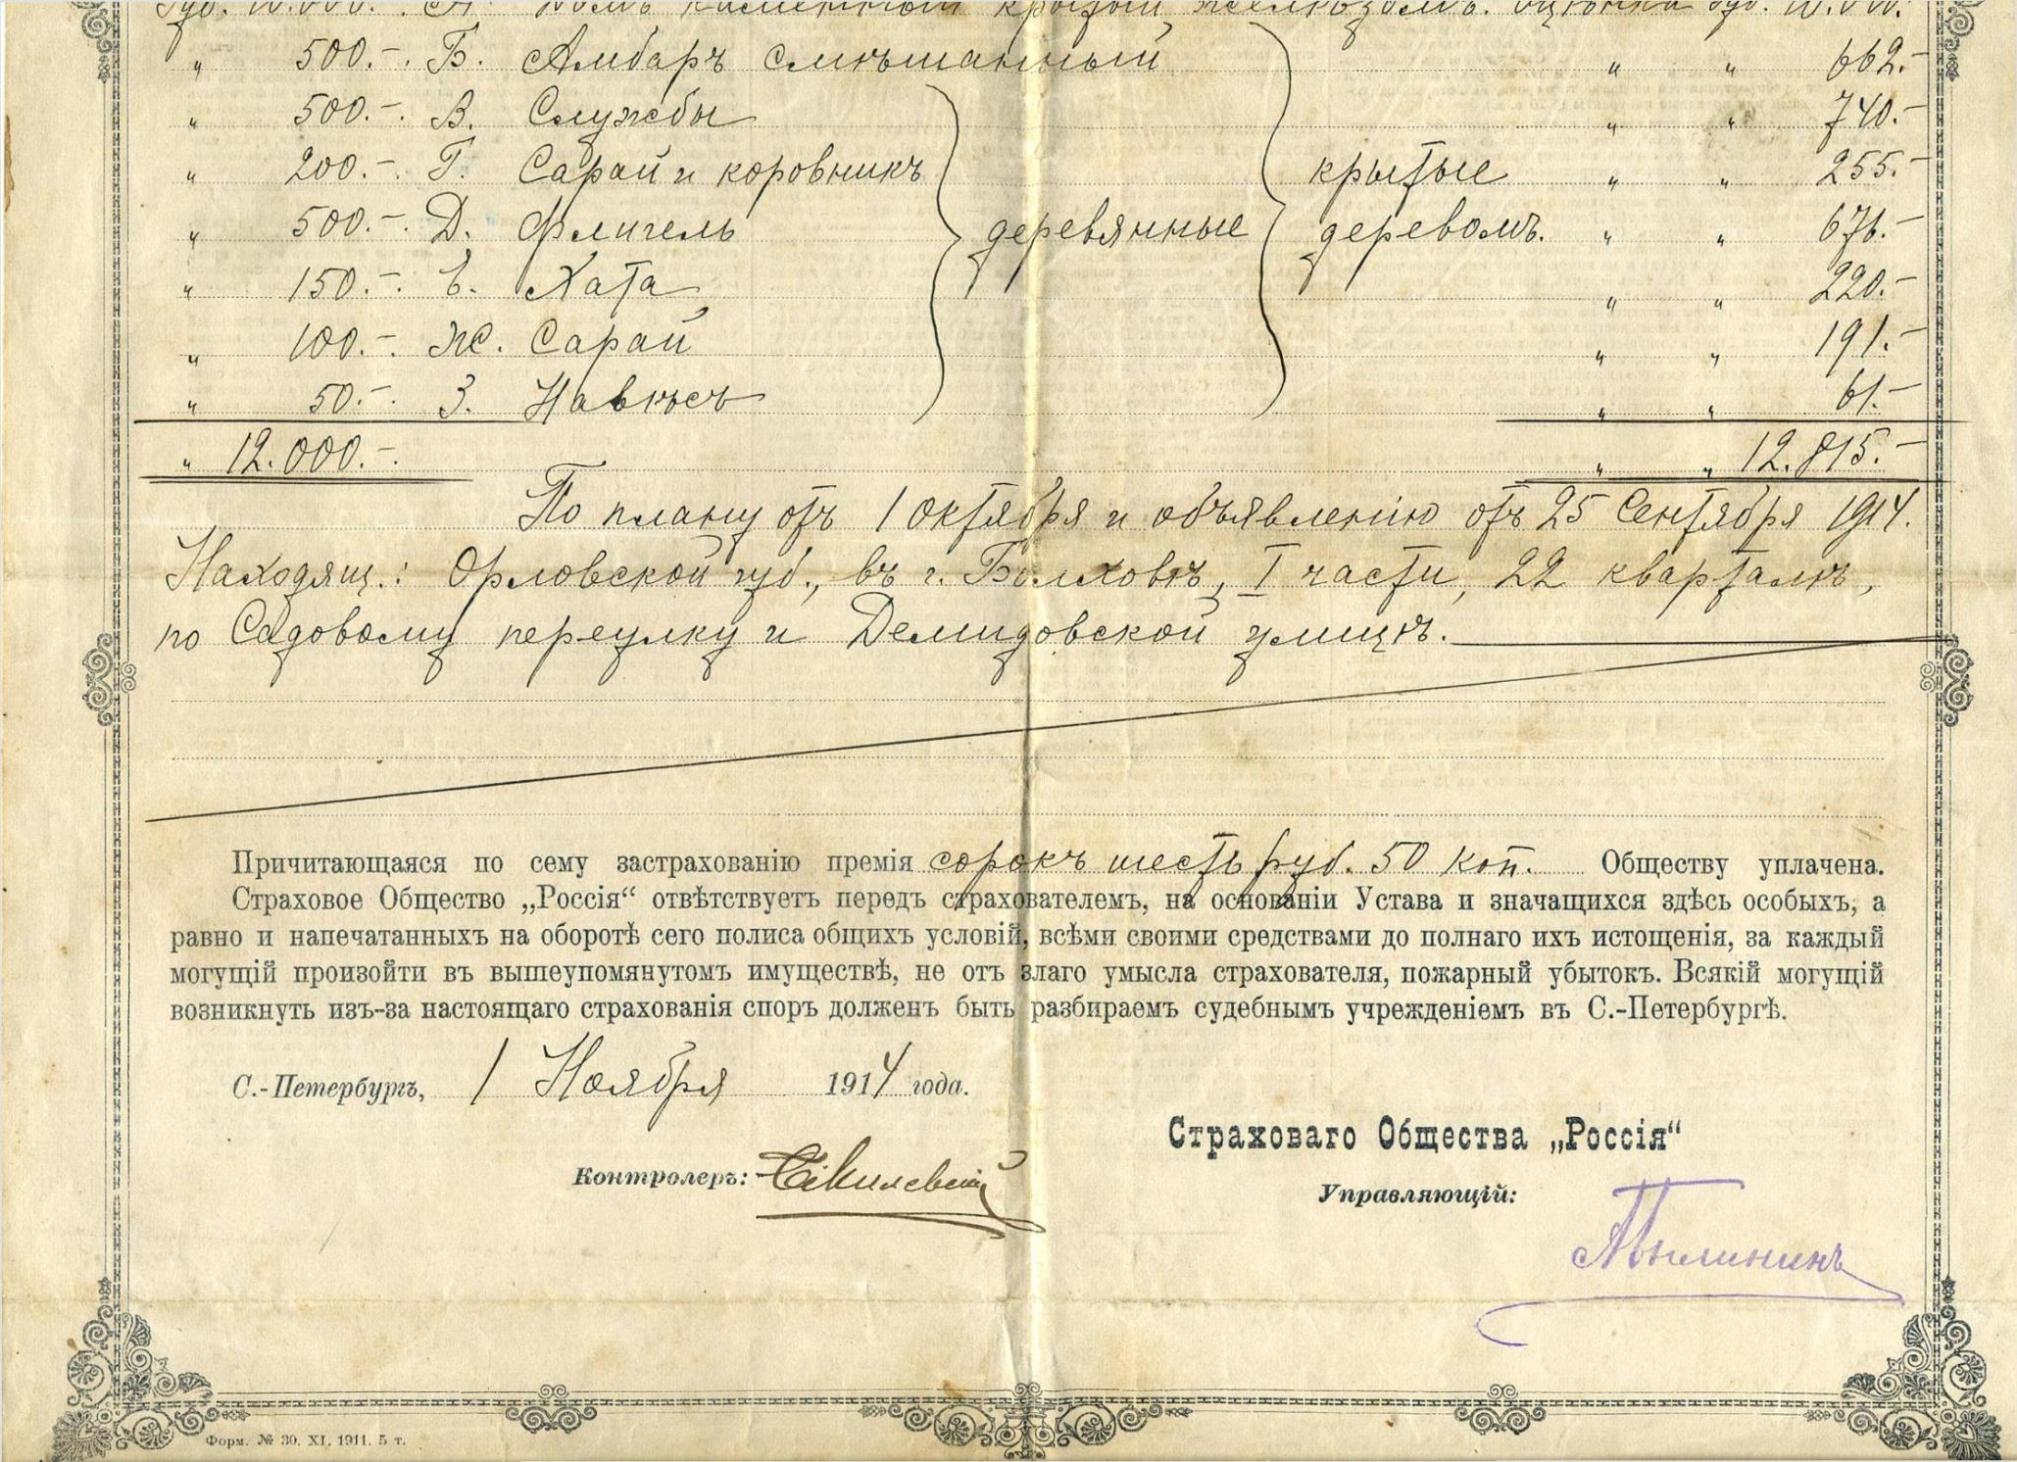 руб. 10.000.- А. Домъ каменный крытый желѣзомъ. Оцѣнка руб. 10.000.-
" 500.- Б. Амбаръ смѣшанный " " 662.-
" 500.- В. Службы " " 740.-
" 200.- Г. Сарай и коровникъ крытые " " 255.-
" 500.- Д. Флигель деревянные деревомъ. " " 676.-
" 150.- Е. Хата " " 220.-
" 100.- Ж. Сарай " " 191.-
" 50.- З. Навѣсъ " " 61.-
" 12.000.- " " 12.815.-
По плану отъ 1 Октября и объявленію отъ 25 Сентября 1914.
Находящ.: Орловской губ., въ г. Болховѣ, I части, 22 кварталѣ,
по Садовому переулку и Демидовской улицѣ.
Причитающаяся по сему застрахованію премія сорокъ шесть руб. 50 коп. Обществу уплачена.
Страховое Общество „Россія“ отвѣтствуетъ передъ страхователемъ, на основаніи Устава и значащихся здѣсь особыхъ, а
равно и напечатанныхъ на оборотѣ сего полиса общихъ условій, всѣми своими средствами до полнаго ихъ истощенія, за каждый
могущій произойти въ вышеупомянутомъ имуществѣ, не отъ злаго умысла страхователя, пожарный убытокъ. Всякій могущій
возникнуть изъ-за настоящаго страхованія споръ долженъ быть разбираемъ судебнымъ учрежденіемъ въ С.-Петербургѣ.
С.-Петербургъ, 1 Ноября 1914 года.
Страховаго Общества „Россія“
Контролеръ:
Управляющій:
Форм. № 30. XI. 1911. 5 т.